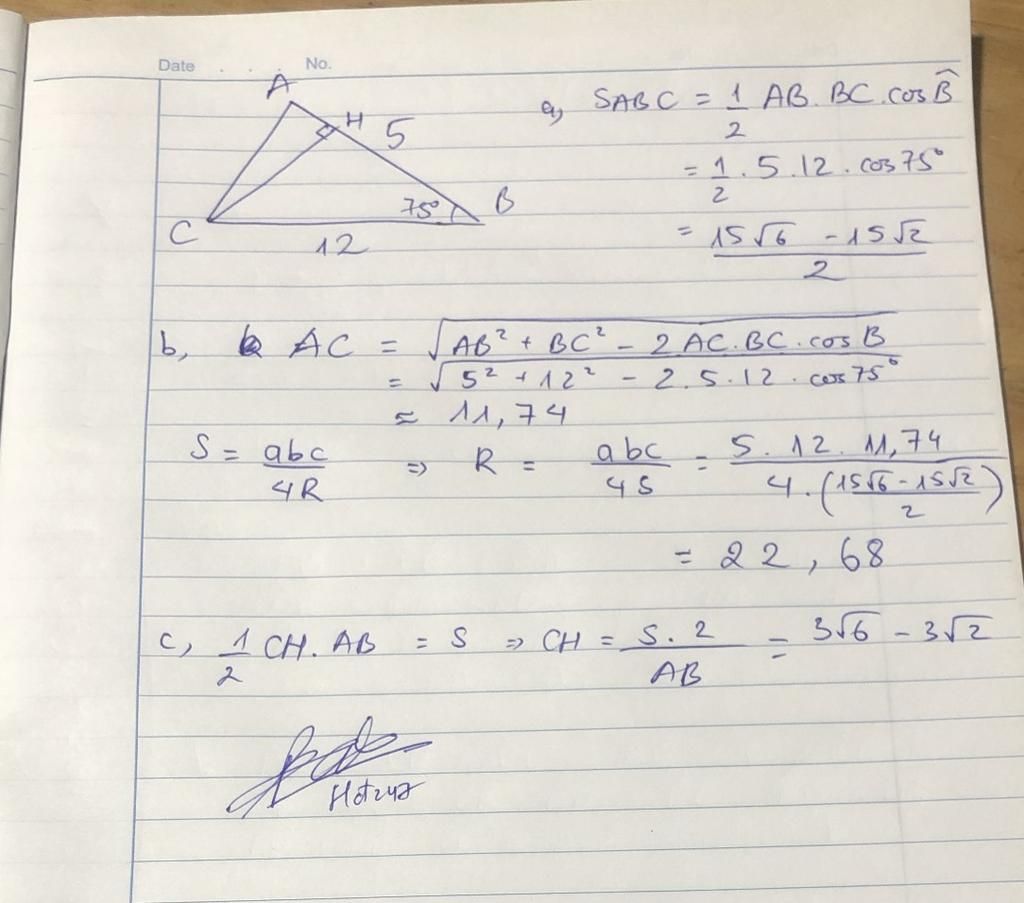 Date . . . No.
A
H
5
75°
B
C
12
a, SABC = 1/2 AB.BC.cosB̂
= 1/2 . 5 . 12 . cos75°
= (15√6 - 15√2)/2
b, AC = √(AB² + BC² - 2AC.BC.cosB)
= √(5² + 12² - 2.5.12.cos75°)
≈ 11,74
S = abc/4R ⇒ R = abc/4S = (5.12.11,74)/(4.((15√6-15√2)/2))
= 22,68
c, 1/2 CH.AB = S ⇒ CH = (S.2)/AB = 3√6 - 3√2